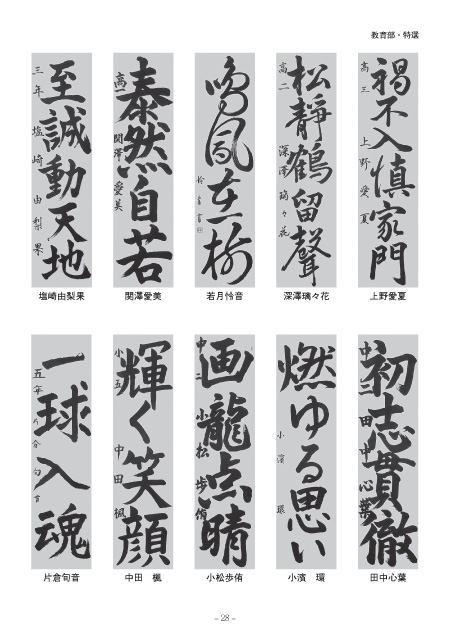 教育部・特選
禍不入慎家門
高三 上野愛夏
上野愛夏
松靜鶴留聲
高二 深澤璃々花
深澤璃々花
鳴鳳在樹
怜音書
若月怜音
泰然自若
高一 関澤愛美
関澤愛美
至誠動天地
三年 塩崎由梨果
塩崎由梨果
初志貫徹
中三 田中心葉
田中心葉
燃ゆる思い
小濱 環
小濱 環
画龍点晴
中二 小松歩侑
小松歩侑
輝く笑顔
小五 中田楓
中田 楓
一球入魂
五年
片倉旬音
– 28 –